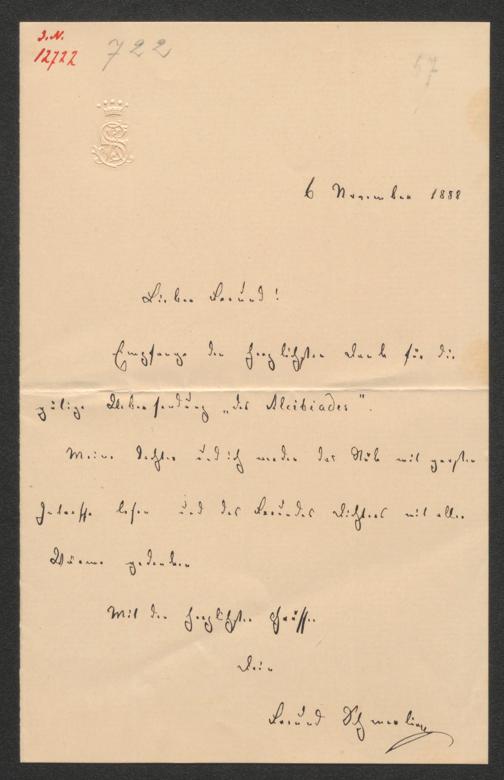 J.N.
12722
722
57
6 November 1888
Lieber Freund!
Empfange den herzlichsten Dank für die
gütige Uebersendung „des Alcibiades".
Meine Tochter und ich werden das Stük mit
Interesse lesen und des Freundes Dichters mit aller
Wärme gedenken
Mit den herzlichsten Grüssen
Dein
Freund Schmerling